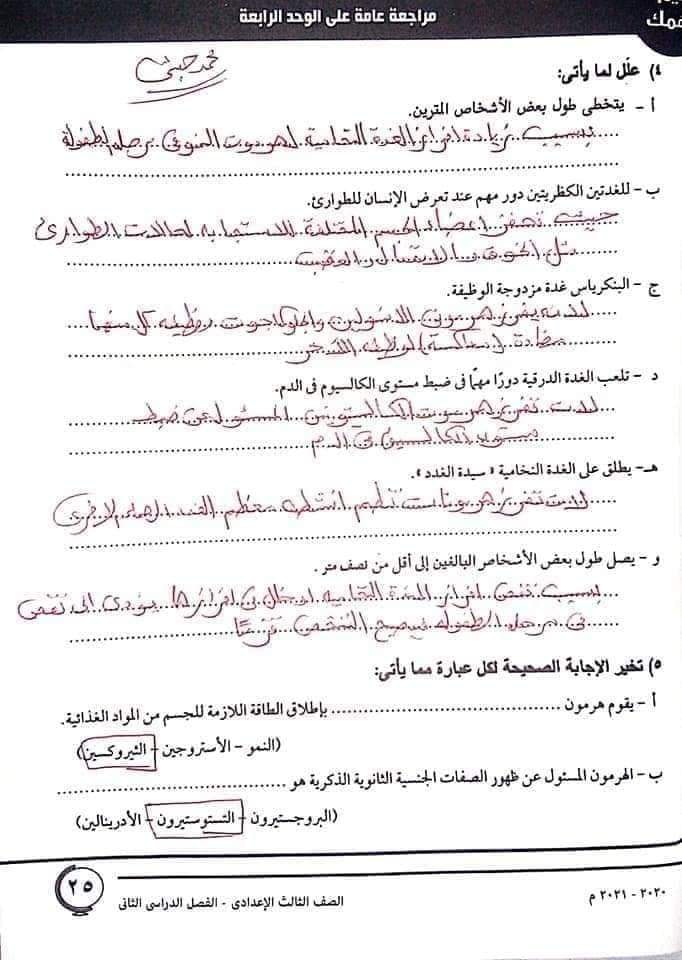 مراجعة عامة على الوحد الرابعة
فهمك
٤) علّل لما يأتى:
أ - يتخطى طول بعض الأشخاص المترين.
بسبب زيادة افراز الغدة النخامية لهرمون النمو فى مرحلة الطفولة
ب - للغدتين الكظريتين دور مهم عند تعرض الإنسان للطوارئ.
حيث تحفز اعضاء الجسم المختلفة للاستجابة لحالات الطوارئ
مثل الخوف والانفعال والغضب
ج - البنكرياس غدة مزدوجة الوظيفة.
لانه يفرز هرمون الانسولين والجلوكاجون وظيفة كل منهما
مضادة (معاكسة) لوظيفة الآخر
د - تلعب الغدة الدرقية دورًا مهمًا فى ضبط مستوى الكالسيوم فى الدم.
لانها تفرز هرمون الكالسيتونين المسئول عن ضبط
مستوى الكالسيوم فى الدم
هـ- يطلق على الغدة النخامية « سيدة الغدد ».
لانها تفرز هرمونات تنظم انشطة معظم الغدد الصماء الاخرى
و - يصل طول بعض الأشخاص البالغين إلى أقل من نصف متر .
بسبب نقص افراز الغدة النخامية افرازها يؤدى الى نقص
فى مرحلة الطفولة فيصبح الشخص قزمًا
٥) تخير الإجابة الصحيحة لكل عبارة مما يأتى:
أ - يقوم هرمون ........................................ بإطلاق الطاقة اللازمة للجسم من المواد الغذائية.
(النمو - الأستروجين - الثيروكسين)
ب - الهرمون المسئول عن ظهور الصفات الجنسية الثانوية الذكرية هو ........................................
(البروجستيرون - التستوستيرون - الأدرينالين)
٢٠٢٠ - ٢٠٢١ م
الصف الثالث الإعدادى - الفصل الدراسى الثانى
٢٥